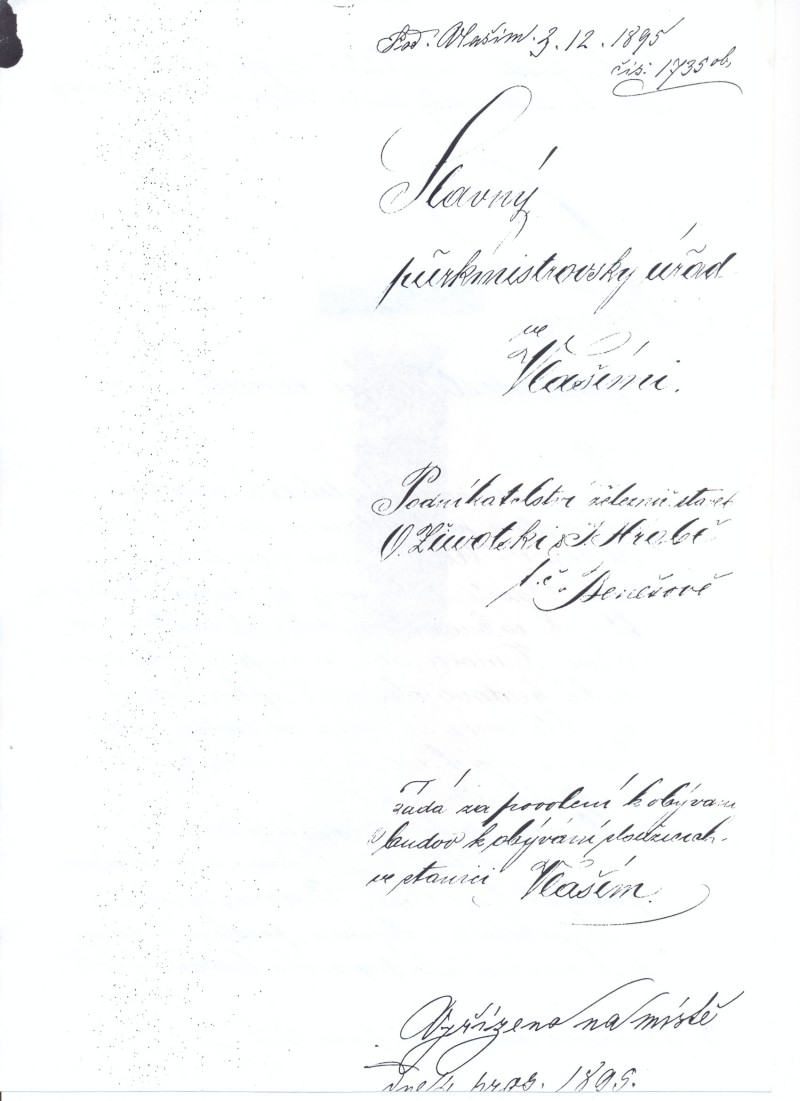 Pod. Vlašim. 3. 12. 1895
čís: 1735 ob.
Slavný
purkmistrovský úřad
ve
Vlašimi.
Podnikatelství železnič. staveb
O. Životski & Hrabě
t. č. v Benešově
žádá za povolení k obývání
budov k obývání sloužících
ve stanici Vlašim.
Vyřízeno na místě
dne 4. pros. 1895.